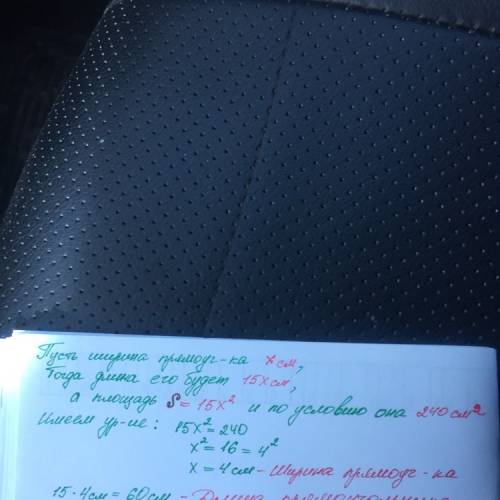 Пусть ширина прямоуг-ка x см,
Тогда длина его будет 15x см,
а площадь S = 15x² и по условию она 240 см²
Имеем ур-ие: 15x² = 240
x² = 16 = 4²
x = 4 см - Ширина прямоуг-ка
15 · 4 см = 60 см - Длина прямоугольника